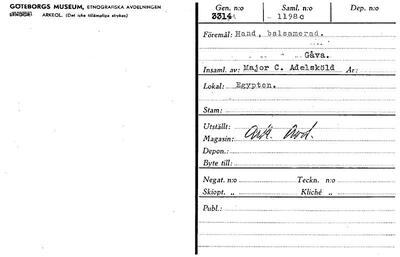 GÖTEBORGS MUSEUM, ETNOGRAFISKA AVDELNINGEN
ARKEOL. (Det icke tillämpliga strykes)
Gen. n:o Saml. n:o Dep. n:o
3314 1198c
Föremål: Hand, balsamerad.
Gåva.
Insaml. av: Major C. Adelsköld År:
Lokal: Egypten.
Stam:
Utställt:
Magasin: Ark. Avd.
Depon.:
Byte till:
Negat. n:o Teckn. n:o
Skiopt. „ Kliché „
Publ.: